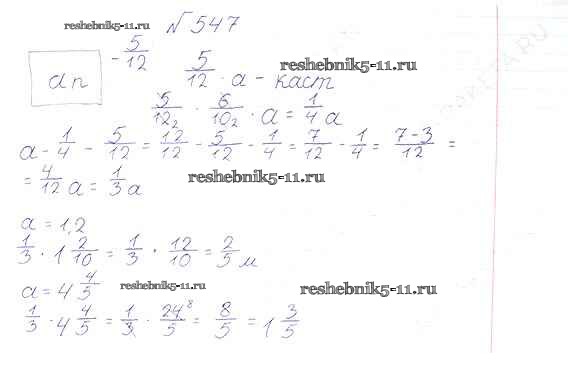 reshebnik5-11.ru № 547
an - 5/12 5/12 · a - каст reshebnik5-11.ru
5/12₂ · 6/10₂ · a = 1/4 a
a - 1/4 - 5/12 = 12/12 - 5/12 - 1/4 = 7/12 - 1/4 = 7-3/12 =
= 4/12 a = 1/3 a reshebnik5-11.ru
a = 1,2
1/3 · 1 2/10 = 1/3 · 12/10 = 2/5 м
a = 4 4/5 reshebnik5-11.ru reshebnik5-11.ru
1/3 · 4 4/5 = 1/3 · 24⁸/5 = 8/5 = 1 3/5